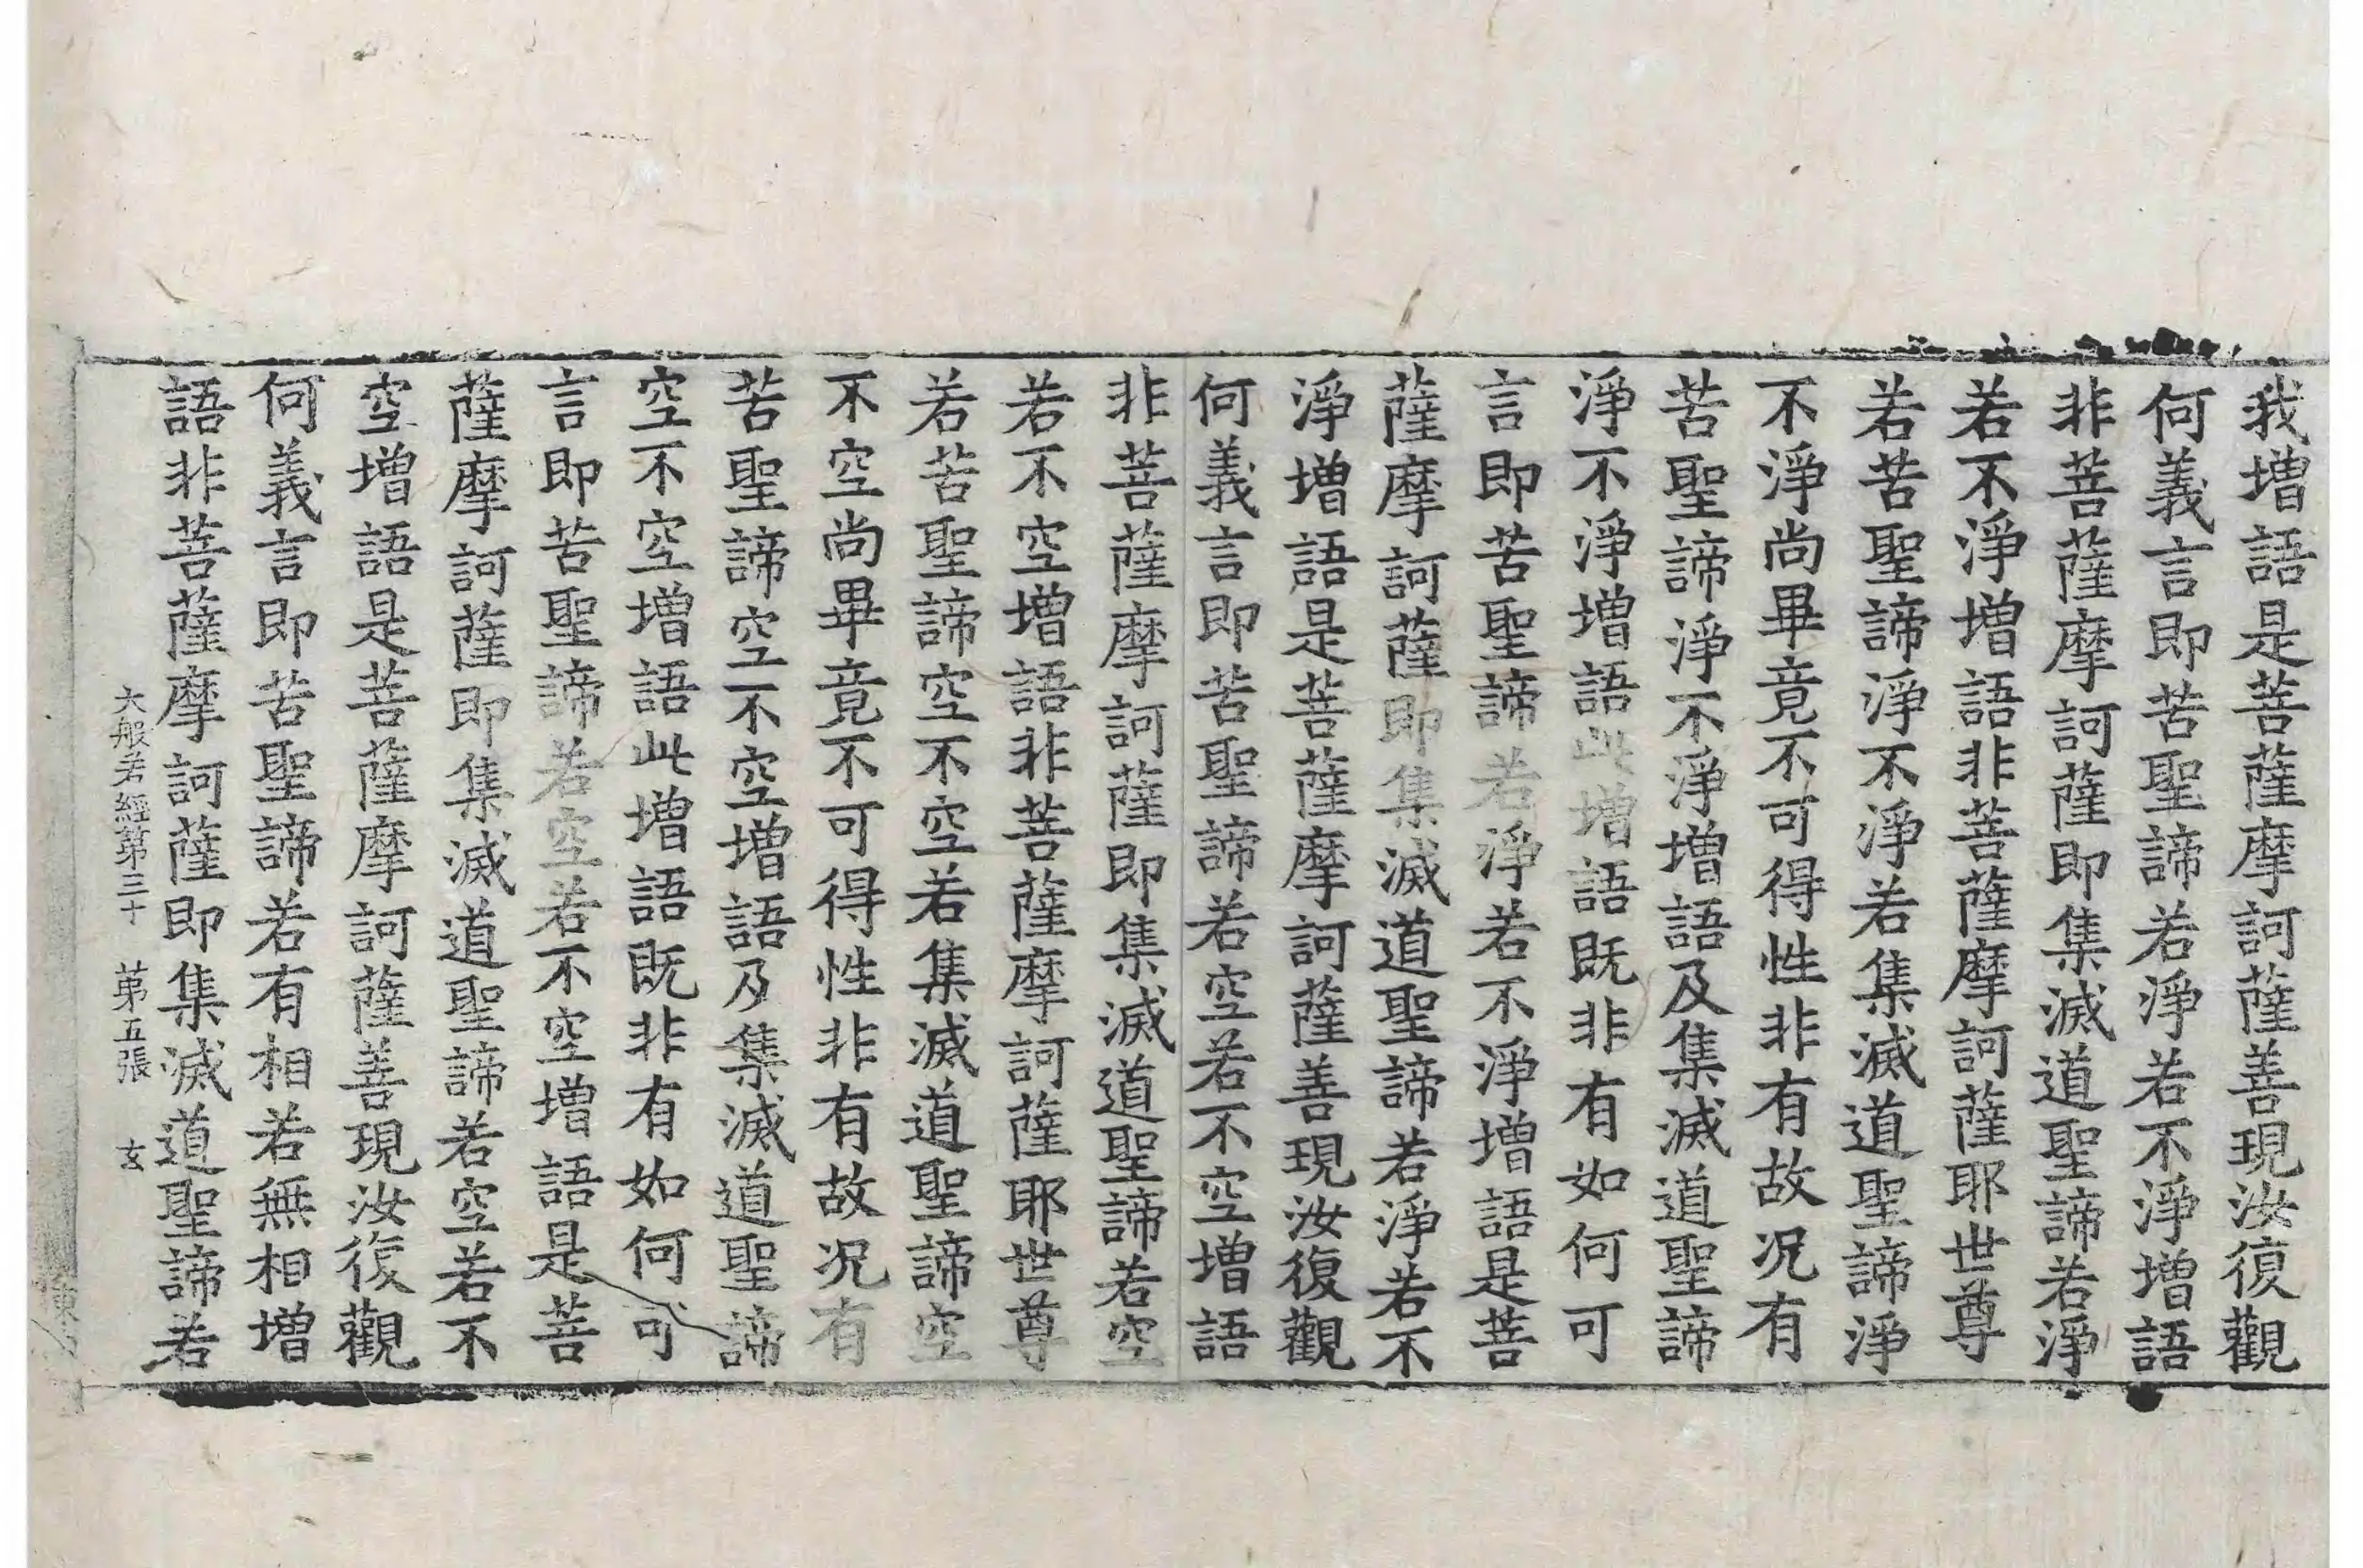 我增語是菩薩摩訶薩善現汝復觀
何義言即苦聖諦若淨若不淨增語
非菩薩摩訶薩即集滅道聖諦若淨
若不淨增語非菩薩摩訶薩耶世尊
若苦聖諦淨不淨若集滅道聖諦淨
不淨尚畢竟不可得性非有故况有
苦聖諦淨不淨增語及集滅道聖諦
淨不淨增語此增語既非有如何可
言即苦聖諦若淨若不淨增語是菩
薩摩訶薩即集滅道聖諦若淨若不
淨增語是菩薩摩訶薩善現汝復觀
何義言即苦聖諦若空若不空增語
非菩薩摩訶薩即集滅道聖諦若空
若不空增語非菩薩摩訶薩耶世尊
若苦聖諦空不空若集滅道聖諦空
不空尚畢竟不可得性非有故况有
苦聖諦空不空增語及集滅道聖諦
空不空增語此增語既非有如何可
言即苦聖諦若空若不空增語是菩
薩摩訶薩即集滅道聖諦若空若不
空增語是菩薩摩訶薩善現汝復觀
何義言即苦聖諦若有相若無相增
語非菩薩摩訶薩即集滅道聖諦若
大般若經第三十 第五張 玄